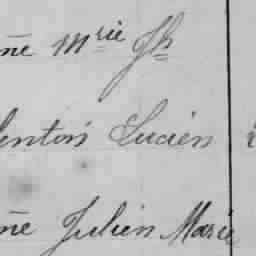 ne Mrie Jh
lentois Lucien
ne Julien Marie